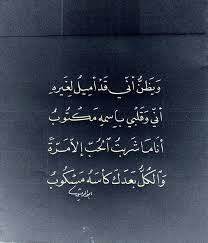 وَيَظنُّ أني قَد أميل لغيرهِ
أنّي وَقَلبي بإسمهِ مَكتُوبُ
أنا ما شربتُ الحُبّ إلا مَرّة
وَالكلُّ بعدَك كأسهُ مسكوبُ